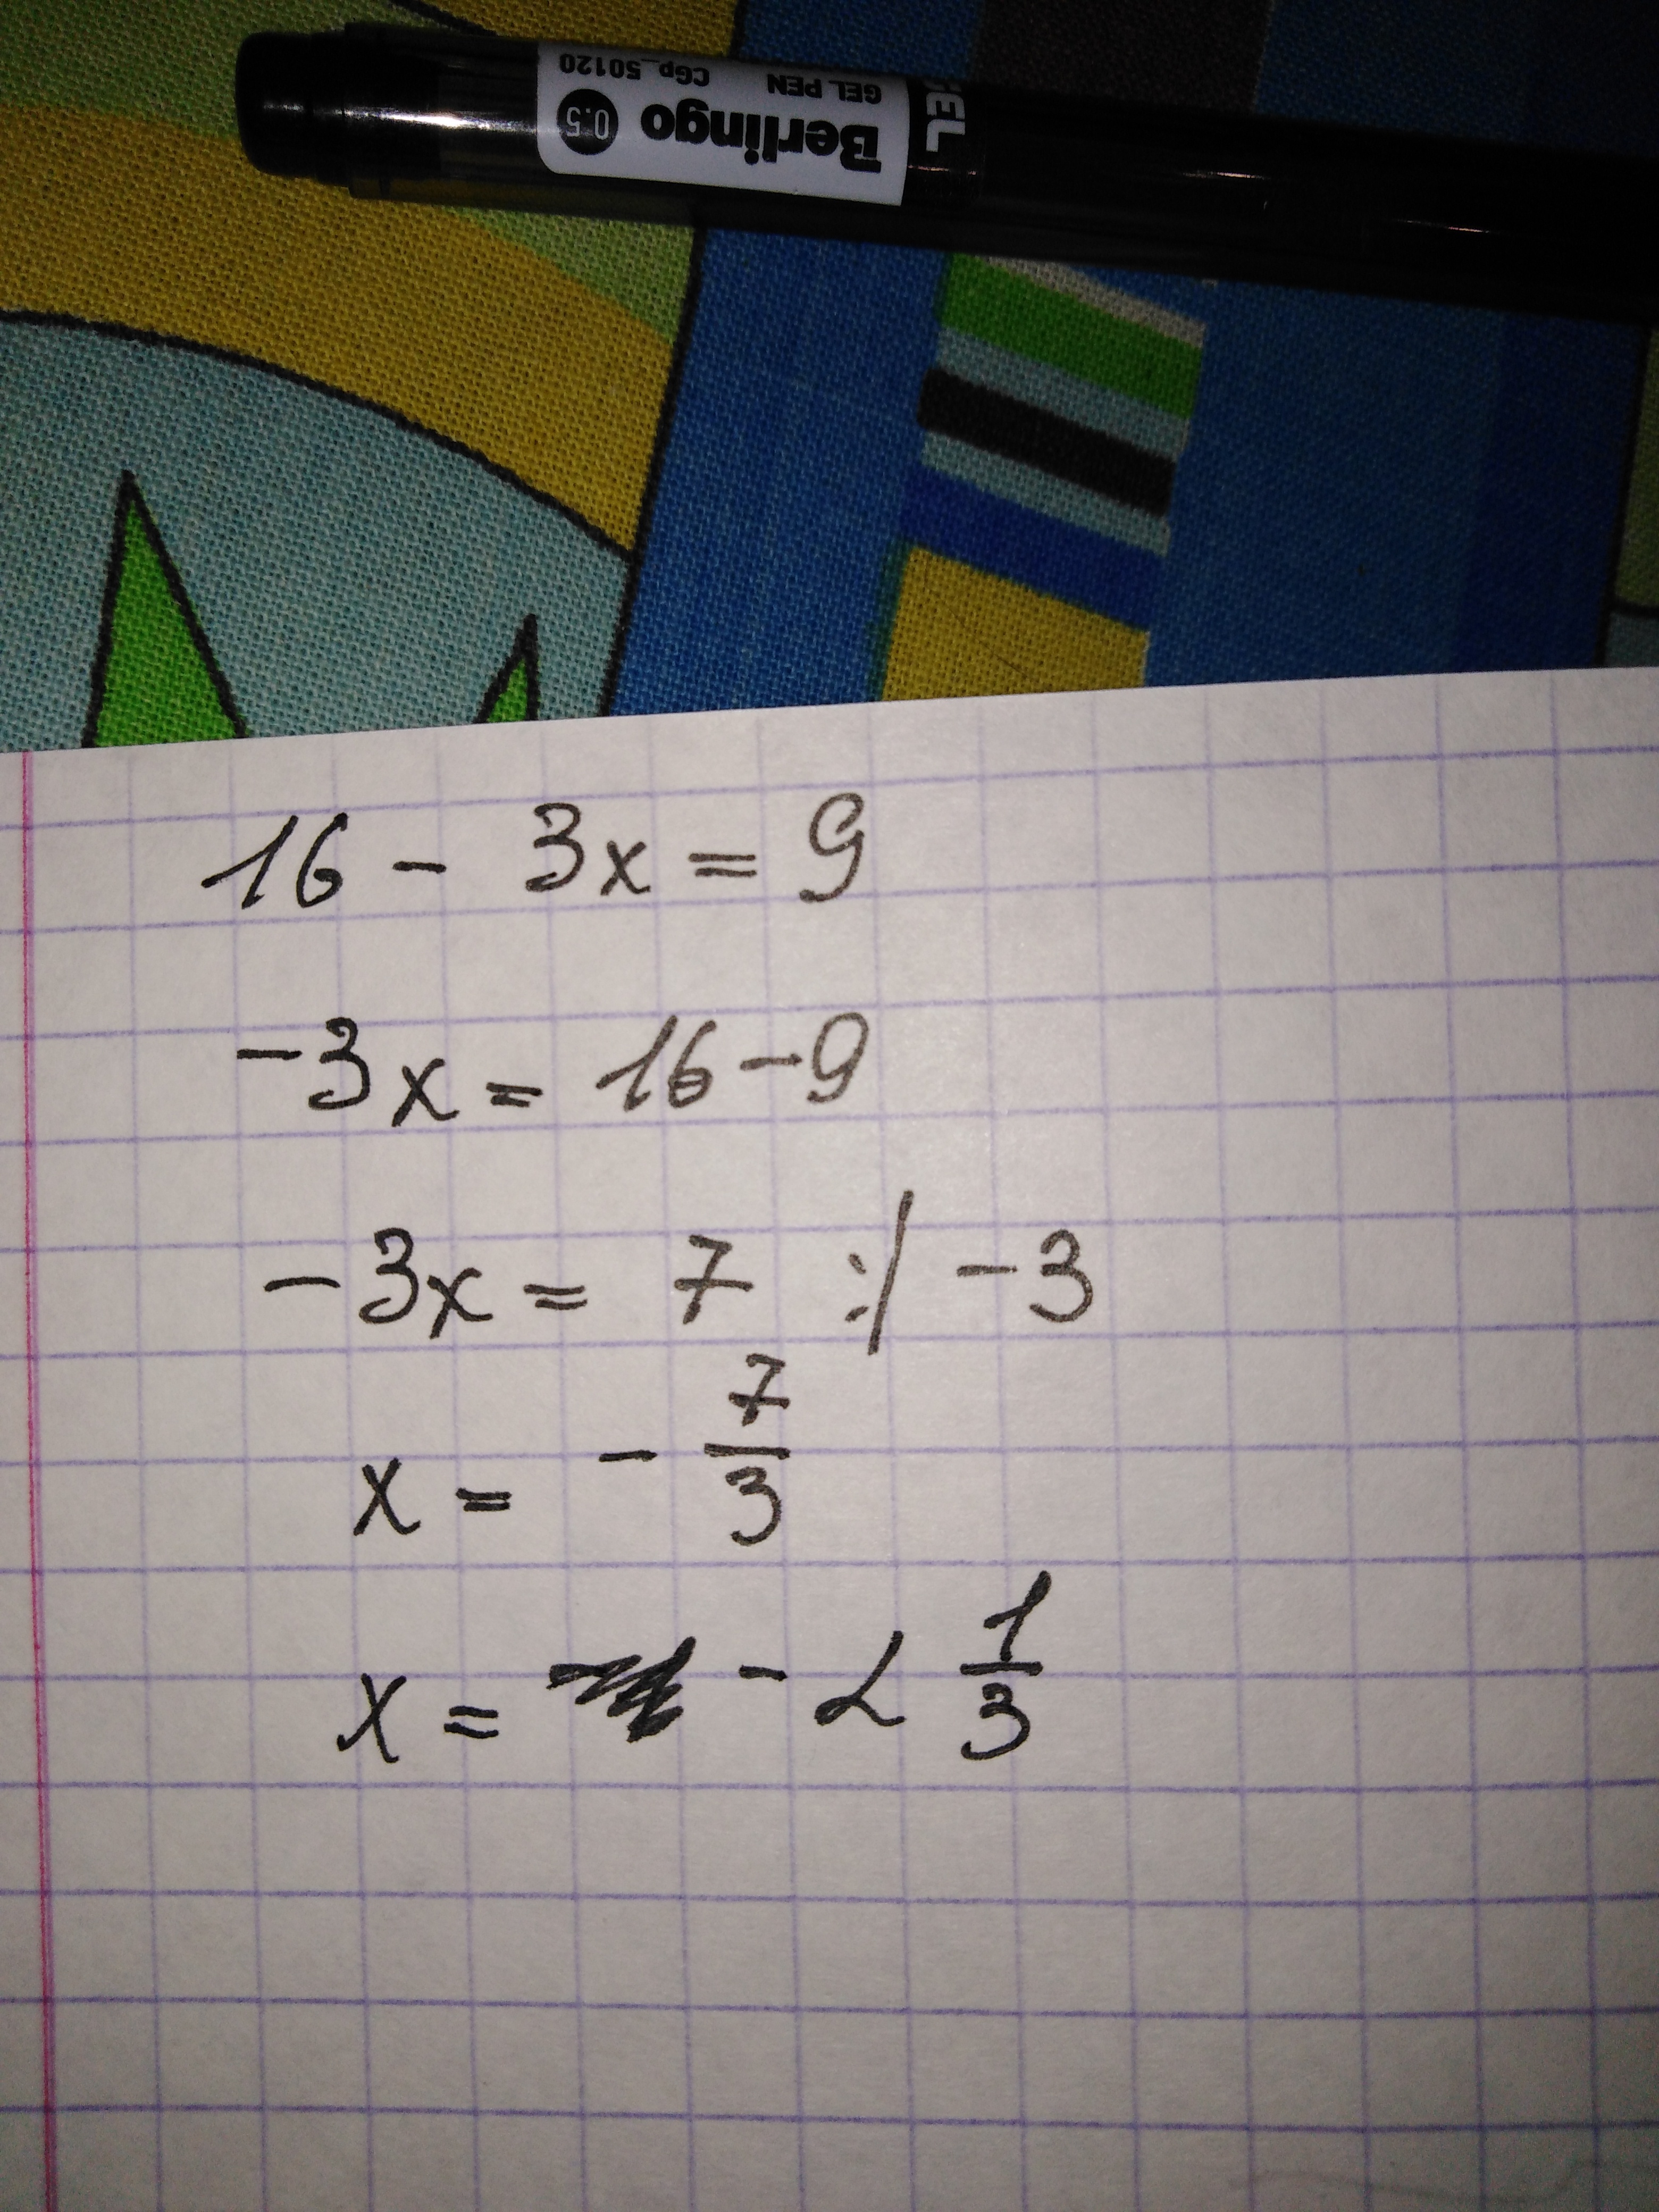 GEL
Berlingo 0.5
GEL PEN CGp_50120
16 - 3x = 9
-3x = 16 - 9
-3x = 7 :/ -3
x = - 7/3
x = - 2 1/3